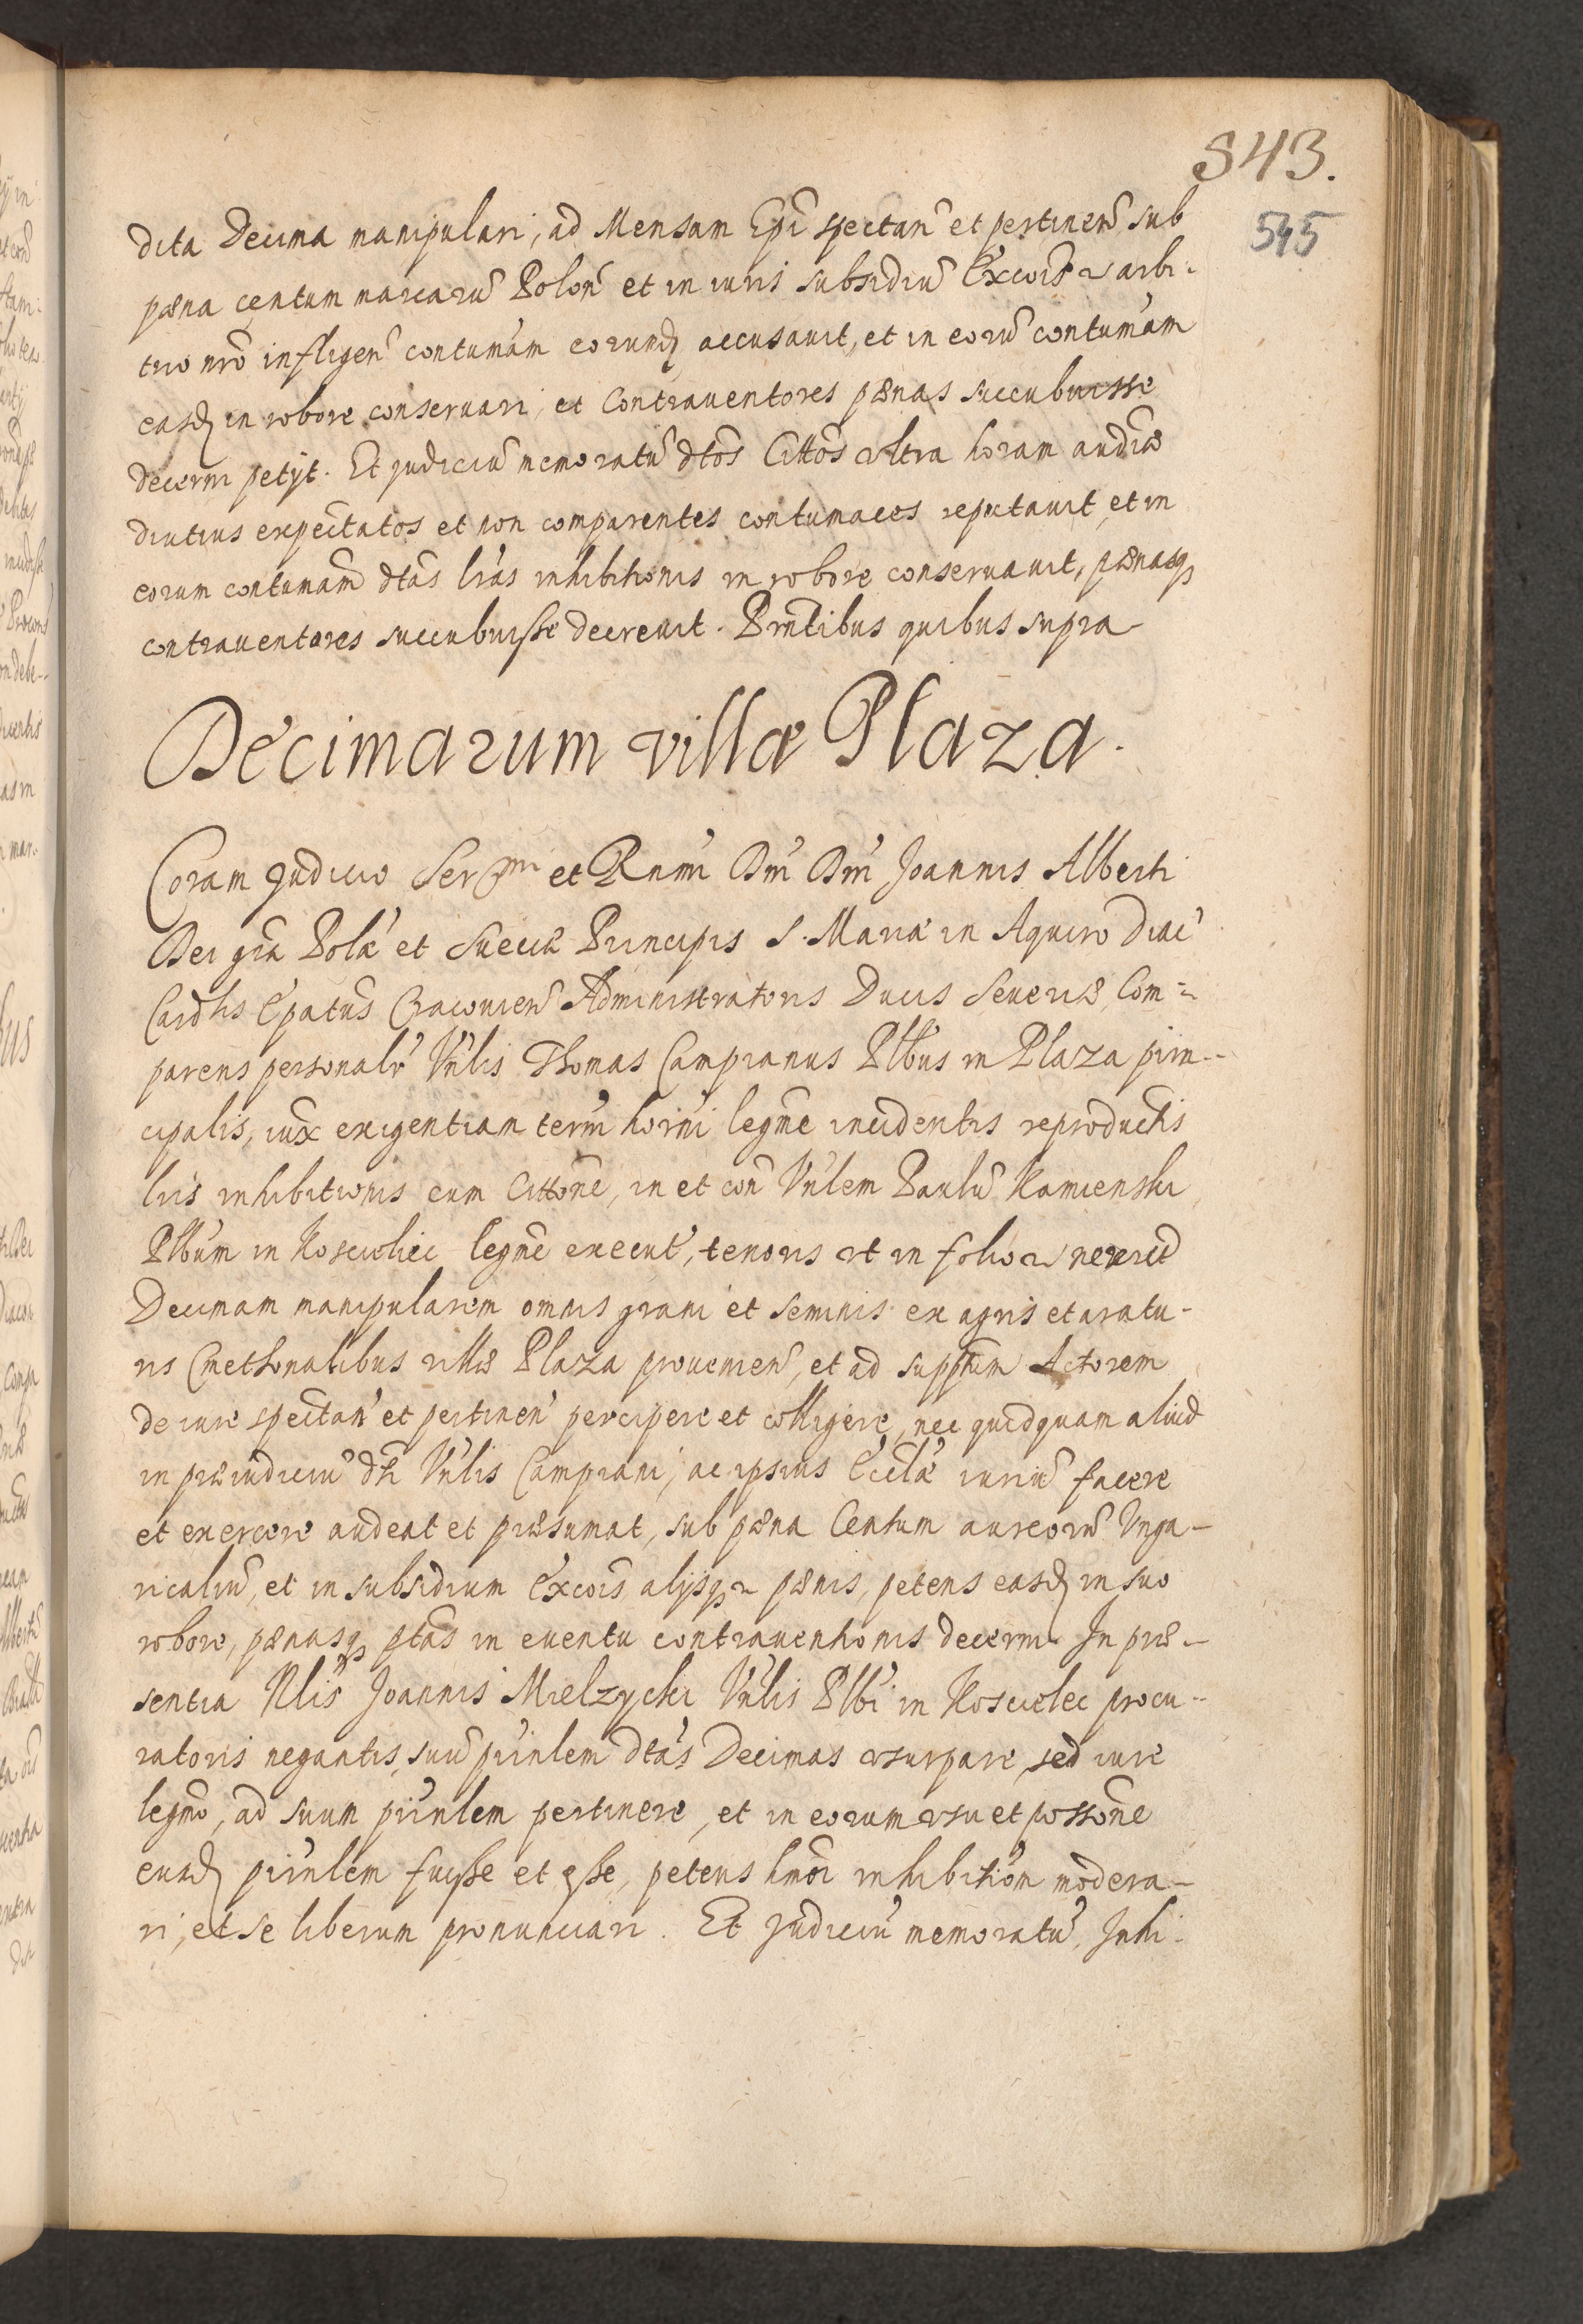 543.
545
dita Decima manipulari, ad Mensam Epi spectan et pertinen sub
pæna centum marcarū Polon et in iuris subsidiū Excois arbi-
trio nro infligen contumám eorund accusavit, et in eorū contumám
easd in robore conservari, et Contraventores pænas succubuisse
decerni petijt. Et judiciū memoratū dtos Cittos vltra horam audiæ
diutius expectatos et non comparentes contumaces reputavit et in
eorum contumam dtas lras inhibitionis in robore conservavit, pænasq
contraventores succubuisse decrevit. Prntibus quibus supra
Decimarum villæ Plaza.
Coram Judicio Sermi et Rnmi Dni Dni Joannis Alberti
Dei gra Polæ et Sueciæ Principis S. Mariæ in Aquiro Diac
Cardlis Epatus Cracovien Administratoris Ducis Severiæ Com=
parens personalr Vnlis Thomas Campianus Plbus in Plaza prin-
cipalis, iux exigentiam term horni legme incidentis reproductis
lris inhibitionis cum Cittone, in et con Vnlem Paulū Kamienski
Plbum in Koscioliec legme execut, tenoris vt in folio nexiū
Decimam manipularem omnis grani et seminis ex agris et aratu-
ris Cmethonalibus villæ Plaza provenien, et ad supptum Actorem
de iure spectan et pertinen percipere et colligere, nec quidquam aliud
in præiudiciū dti Vnlis Campiani, ac ipsius Ecclæ iuriū facere
et exercere audeat et præsumat, sub pæna Centum aureorū Vnga-
ricaliū, et in subsidium Excois alijsq pænis, petens easd in suo
robore, pænasq ptas in eventu contraventionis decerni. In præ-
sentia Nlis Joannis Mielzycki Vnlis Plbi in Kosciolec procu-
ratoris negantis, suū prinlem dtas Decimas vsurpare, sed iure
legmo, ad suum prinlem pertinere, et in eorum vsu et possone
eund prinlem fuisse et esse, petens hmoi inhibition modera-
ri, et se liberum pronunciari. Et Judiciū memoratū, Inhi-